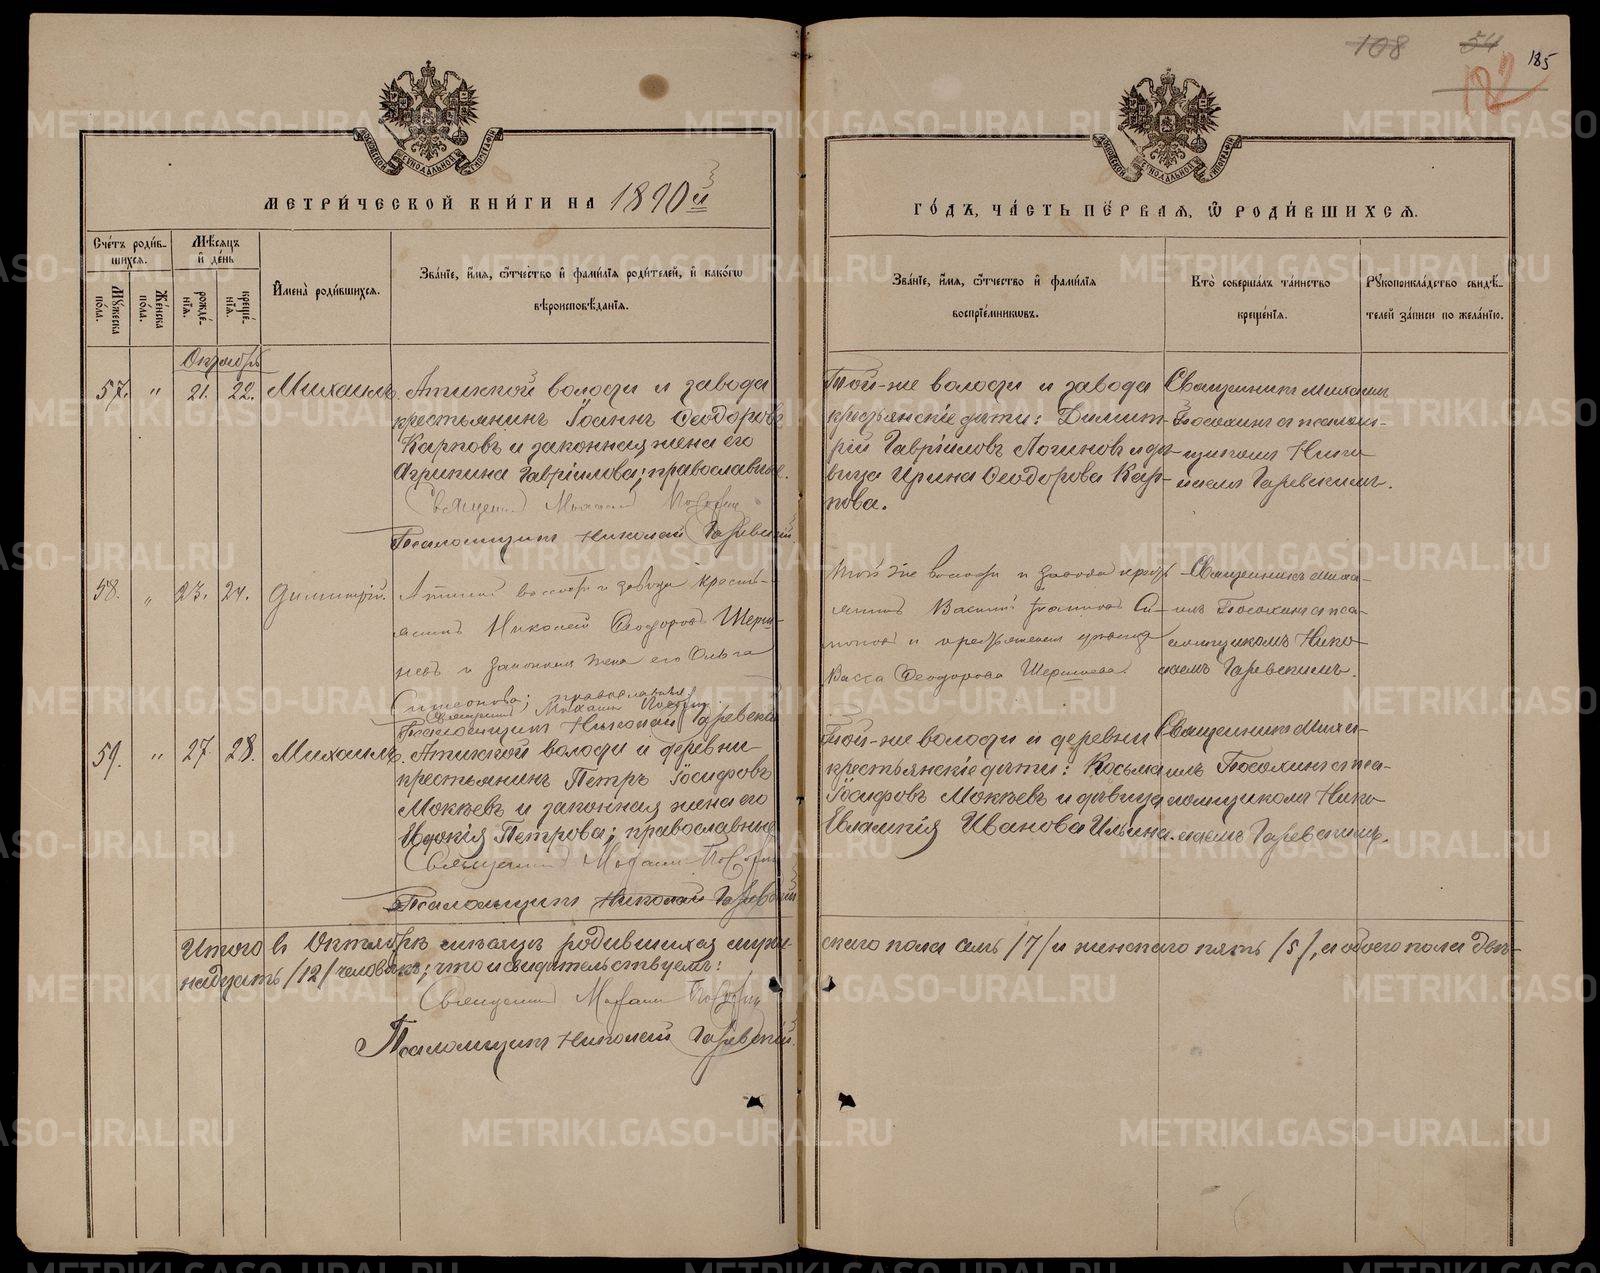 108 54 185
122
МЕТРИ́ЧЕСКОЙ КНИ́ГИ НА 1890й
ГО́ДЪ, ЧА́СТЬ ПЕ́РВАЯ, Ѽ РОДИ́ВШИХСЯ.
Сче́тъ роди́в-
шихся.
Мѣ́сяцъ
и́ де́нь
Му́жеска
по́ла.
Же́нска
по́ла.
рожде́-
нїя.
креще́-
нїя.
И҆мена̀ роди́вшихся.
Зва́нїе, и҆́мя, ѻ҆́тчество и҆ фами́лїя роди́телей, и҆ како́гѡ
вѣроисповѣ́данїя.
Зва́нїе, и҆́мя, ѻ҆́тчество и҆ фами́лїя
воспрїе́мникѡвъ.
Кто̀ соверша́лъ та́инство
креще́нїя.
Рꙋкоприкла́дство свидѣ́-
телей за́писи по жела́нїю.
Октябрь
57. " 21. 22. Михаилъ.
Атигской волости и завода
крестьянинъ Іоаннъ Ѳеодоровъ
Карповъ и законная жена его
Агрипина Гавріилова; православные.
Священник Михаил Посохин
Псаломщикъ Николай Гаревский
Той-же волости и завода
крестьянскіе дѣти: Димит-
рій Гавріиловъ Логиновъ и дѣ-
вица Ирина Ѳеодорова Кар-
пова.
Священникъ Михаилъ
Посохинъ съ псалом-
щикомъ Нико-
лаемъ Гаревскимъ.
58. " 23. 24. Димитрій.
волости и завода кресть-
янинъ Николай Ѳеодоровъ Шерш-
невъ и законная жена его Ольга
Симеонова; православные
Священник Михаил Посохин
Псаломщикъ Николай Гаревский
Той же волости и завода кресть-
янинъ Василій
и крестьянская девица
Васса Ѳеодорова Шершнева.
Священникъ Миха-
илъ Посохинъ съ пса-
ломщикомъ Нико-
лаемъ Гаревскимъ.
59. " 27 28. Михаилъ.
Атигской волости и деревни
крестьянинъ Петръ Іосифовъ
Мокѣевъ и законная жена его
Евдокія Петрова; православные
Священник Михаил Посохин
Псаломщикъ Николай Гаревский
Той-же волости и деревни
крестьянскіе дѣти: Косьма
Іосифовъ Мокѣевъ и дѣвица
Евлампія Иванова Ильина.
Священникъ Миха-
илъ Посохинъ съ пса-
ломщикомъ Нико-
лаемъ Гаревскимъ.
Итого въ Октябрѣ мѣсяцѣ родившихся муже-
скаго пола семь /7/ и женскаго пять /5/, а обоего пола двѣ-
надцать /12/ человѣкъ; что и свидѣтельствуемъ:
Священник Михаил Посохин
Псаломщикъ Николай Гаревский.
METRIKI.GASO-URAL.RU